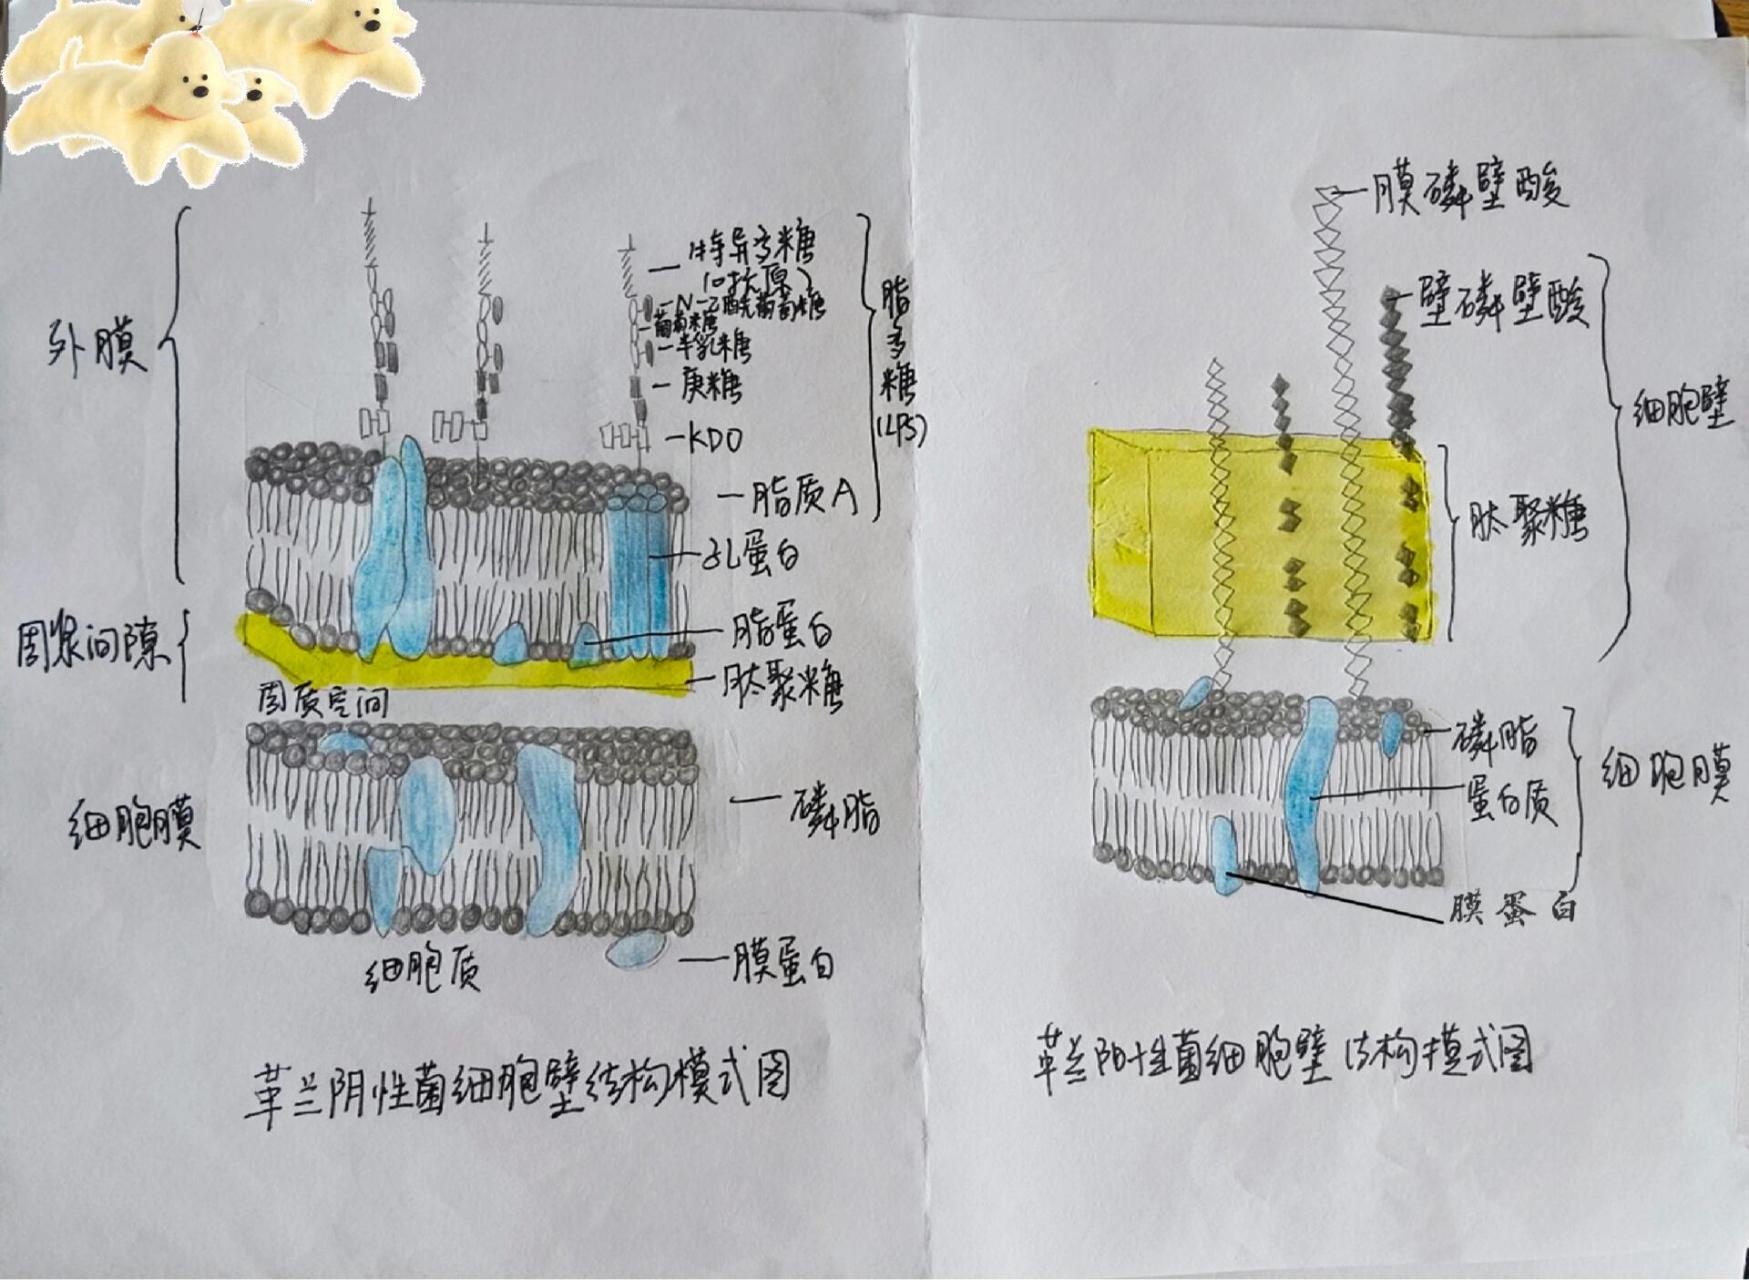 外膜
特异多糖
(O抗原)
N-乙酰葡萄糖
葡萄糖
半乳糖
庚糖
KDO
脂质A
脂多糖
(LPS)
孔蛋白
脂蛋白
肽聚糖
周浆间隙
周质空间
细胞膜
磷脂
细胞质
膜蛋白
革兰阴性菌细胞壁结构模式图
膜磷壁酸
壁磷壁酸
细胞壁
肽聚糖
磷脂
蛋白质
细胞膜
膜蛋白
革兰阳性菌细胞壁结构模式图